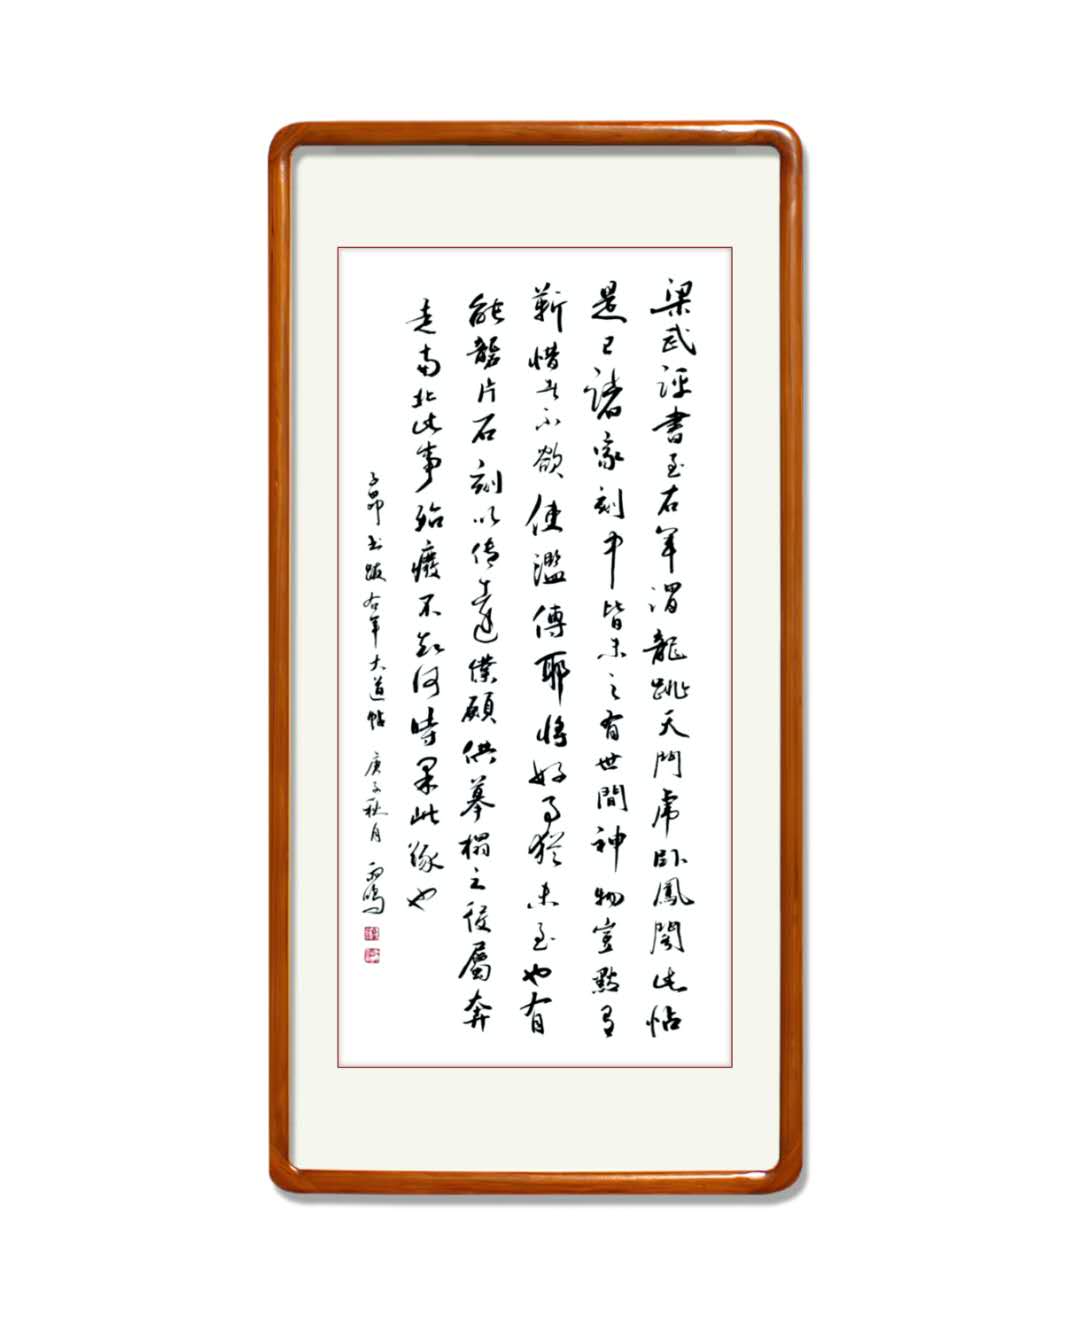 梁武評書至右軍謂龍跳天門虎臥鳳閣此帖
是已諸家刻中皆未之有世間神物豈點習
靳惜者不欲使濫傳耶將好事猶未至也有
能礱片石刻以傳遠僕願供摹榻之役屬奔
走南北此事殆廢不知何時果此緣也
子昂書跋右軍大道帖 庚子秋月 雨鳴